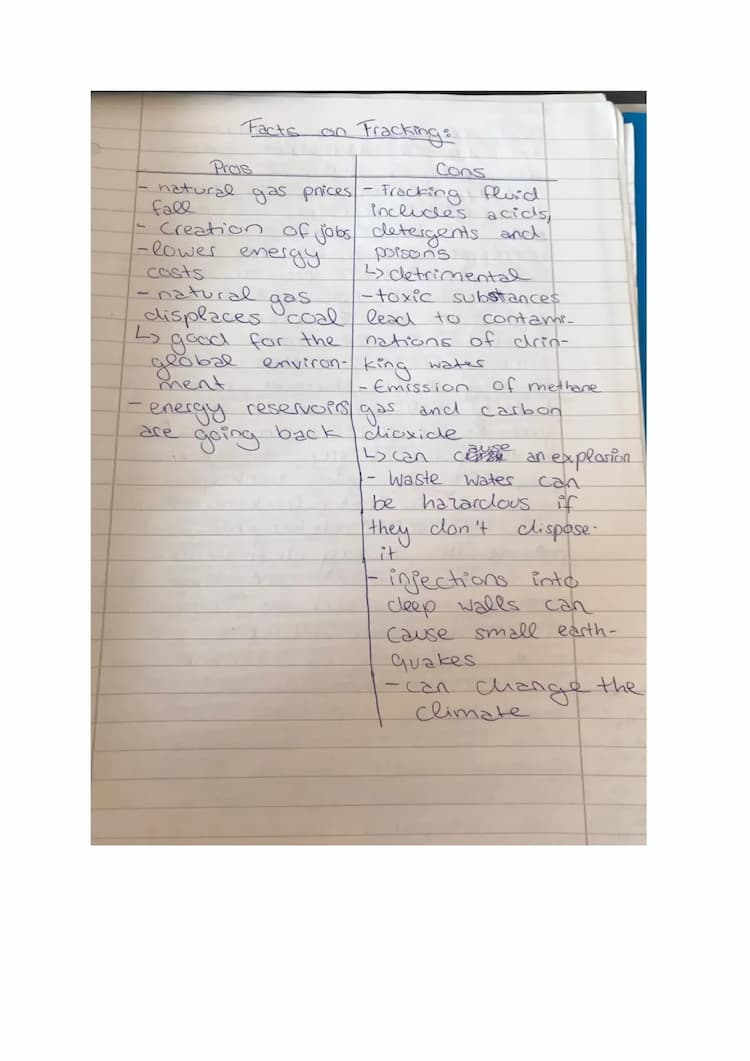 Facts on Fracking:
Pros
- natural gas prices
fall
- Creation of jobs
- lower energy
costs
- natural gas
displaces coal
↳ good for the
global environ-
ment
- energy reservoirs
are going back
Cons
- Fracking fluid
includes acids,
detergents and
poisons
↳ detrimental
- toxic substances
lead to contami-
nations of drin-
king water
- Emission of methane
gas and carbon
dioxide
↳ can cause an explosion
- Waste water can
be hazardous if
they don't dispose
it
- injections into
deep walls can
cause small earth-
quakes
- can change the
climate